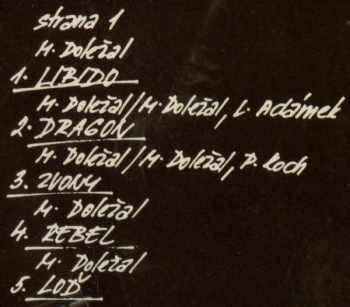 strana 1
M. Doležal
1. LIBIDO
M. Doležal/M. Doležal, L. Adámek
2. DRAGON
M. Doležal/M. Doležal, P. Koch
3. ZVONY
M. Doležal
4. REBEL
M. Doležal
5. LOĎ